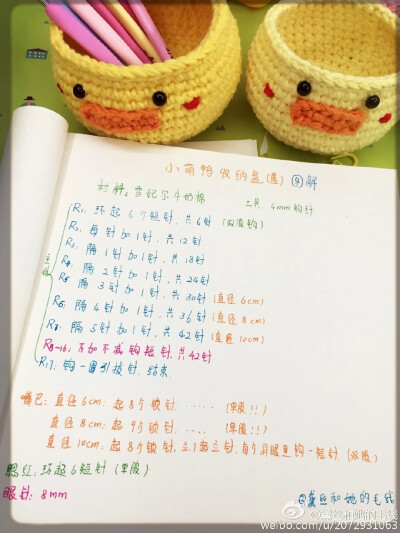 小萌鸭收纳盒(篮)图解
材料:雪妃尔牛奶棉 工具:4mm钩针
主体
R1:环起6个短针,共6针(双股钩)
R2:每针加1针,共12针
R3:隔1针加1针,共18针
R4:隔2针加1针,共24针
R5:隔3针加1针,共30针(直径6cm)
R6:隔4针加1针,共36针(直径8cm)
R7:隔5针加1针,共42针(直径10cm)
R8-16:不加不减钩短针,共42针
R17:钩一圈引拔针,结束
嘴巴:直径6cm:起8个锁针……(单股!!)
直径8cm:起9个锁针……(单股!!)
直径10cm:起8个锁针,立1起立针,每个洞眼里钩一短针(双股)
腮红:环起6短针(单股)
眼针:8mm
和她的毛线
weibo.com/u/2072931063